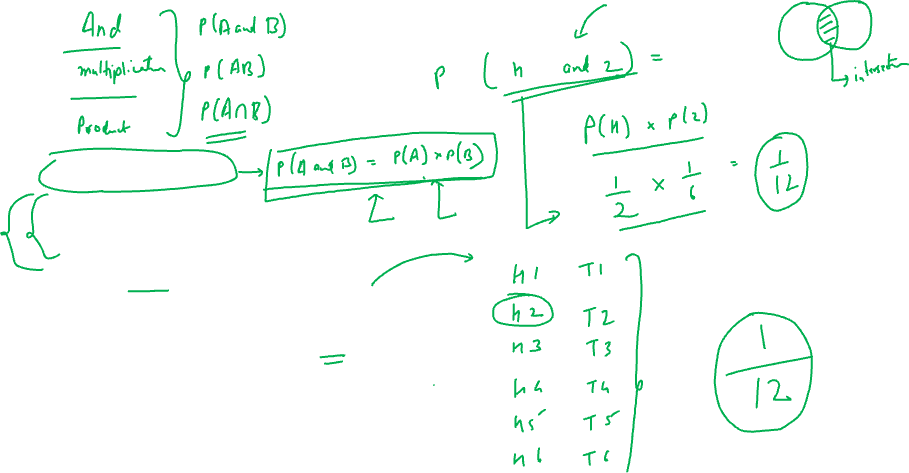 And
multiplication
Product
P(A and B)
P(AB)
P(A∩B)
P(A and B) = P(A) × P(B)
P ( H and 2 ) =
P(H) × P(2)
1/2 × 1/6 = 1/12
intersection
H1 T1
H2 T2
H3 T3
H4 T4
H5 T5
H6 T6
=
1/12